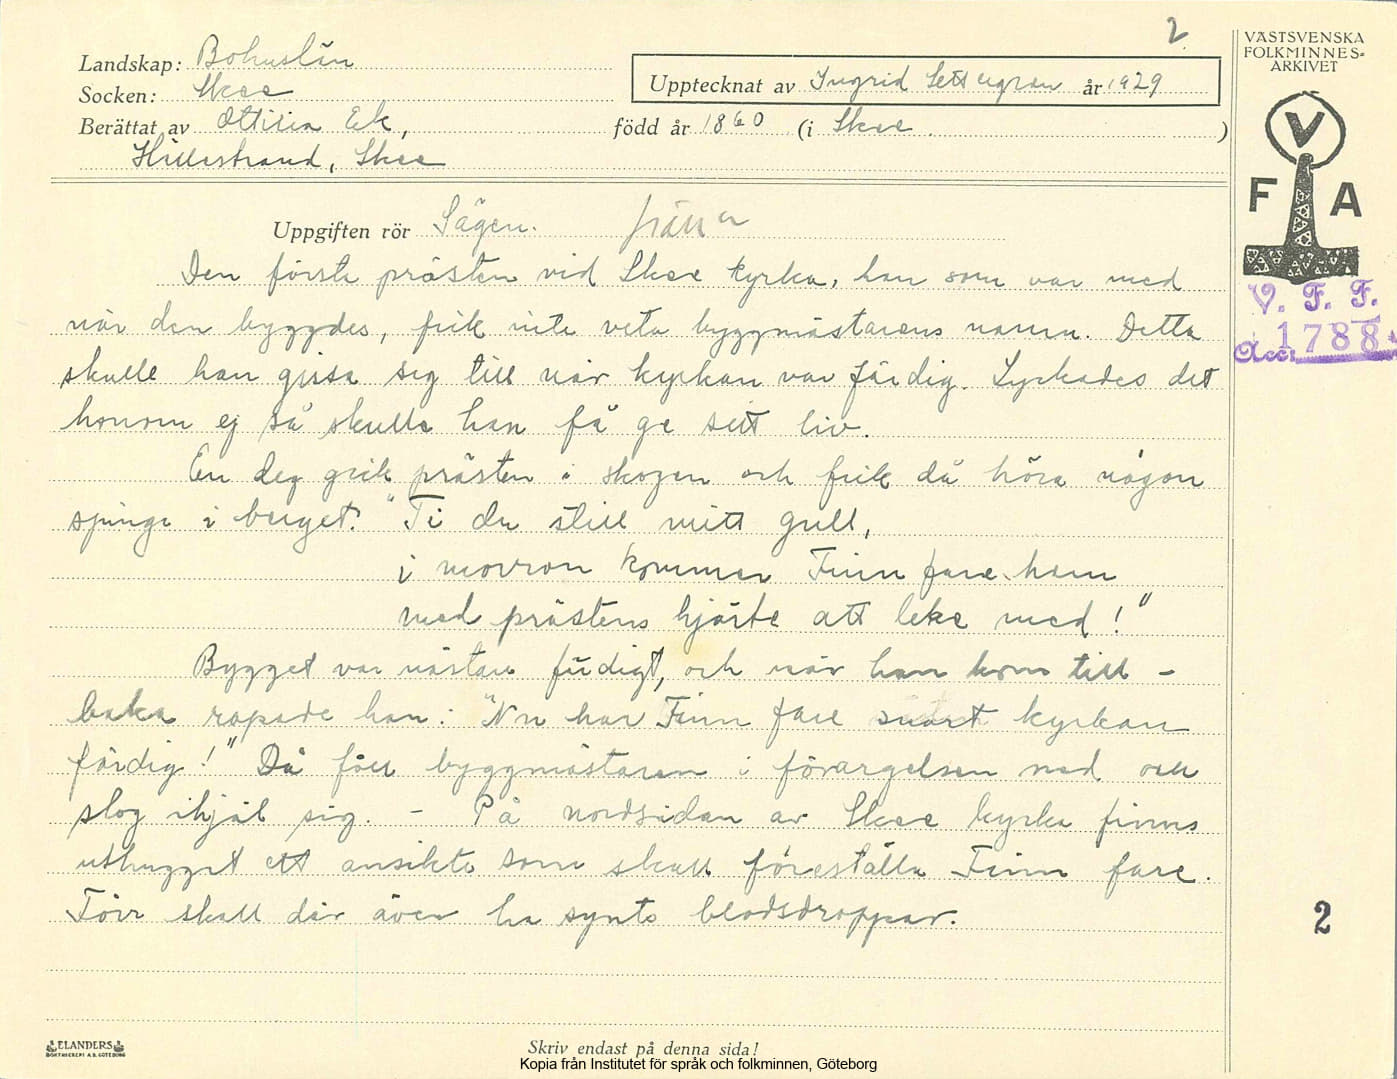 2
Landskap: Bohuslän
Socken: Skee
Upptecknat av Ingrid år 1929
Berättat av Ottilia Ek, född år 1860 (i Skee.)
Hillestrand, Skee
VÄSTSVENSKA
FOLKMINNES=
ARKIVET
V
F A
V. F. F.
Acc: 1788
Uppgiften rör Sägen.
Den första prästen vid Skee kyrka, han som var med
när den byggdes, fick inte veta byggmästarens namn. Detta
skulle han gissa sig till när kyrkan var färdig. Lyckades det
honom ej så skulle han få ge sitt liv.
En dag gick prästen i skogen och fick då höra någon
sjunga i berget. "Ti du still mitt gull,
i morron kommer Finn fare hem
med prästens hjärte att leke med!"
Bygget var nästan färdigt, och när han kom till-
baka ropade han: "Nu har Finn fare snart kyrkan
färdig!" Då föll byggmästaren i förargelsen ned och
slog ihjäl sig. - På nordsidan av Skee kyrka finns
uthugget ett ansikte som skall föreställa Finn fare.
Förr skall där även ha synts blodsdroppar.
2
ELANDERS
BOKTRYCKERI A.B. GÖTEBORG
Skriv endast på denna sida!
Kopia från Institutet för språk och folkminnen, Göteborg